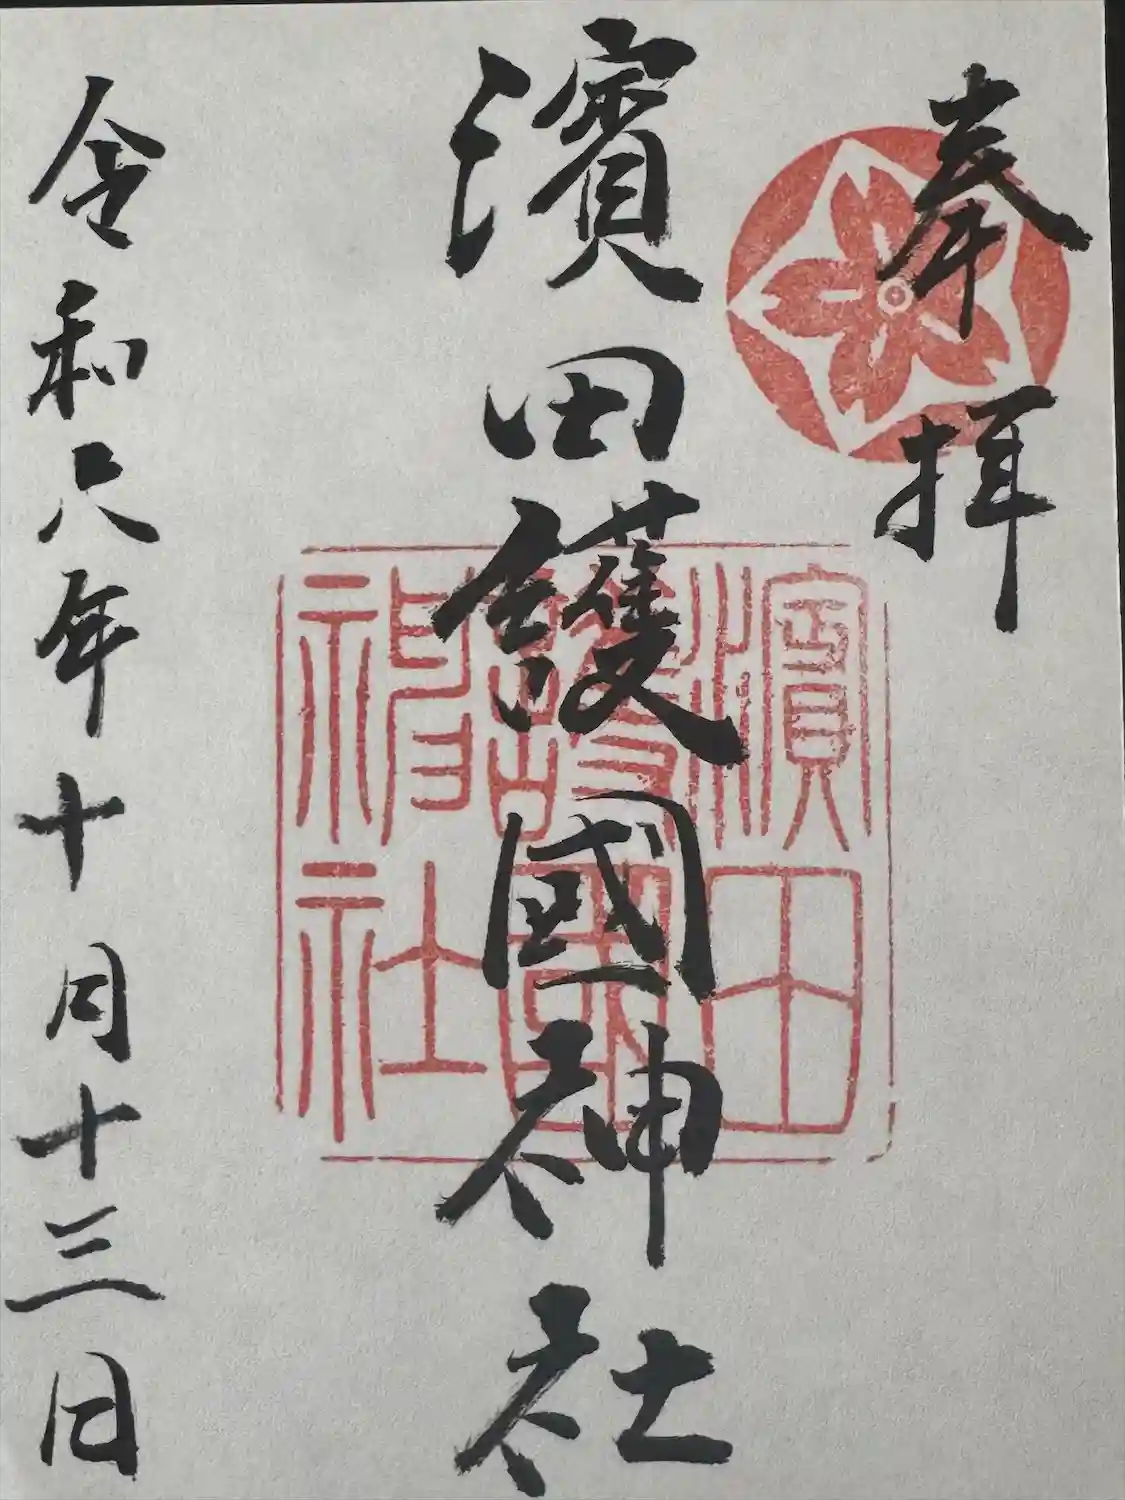 奉拝
濱田護國神社
濱田
護國
神社
令和六年十月十三日